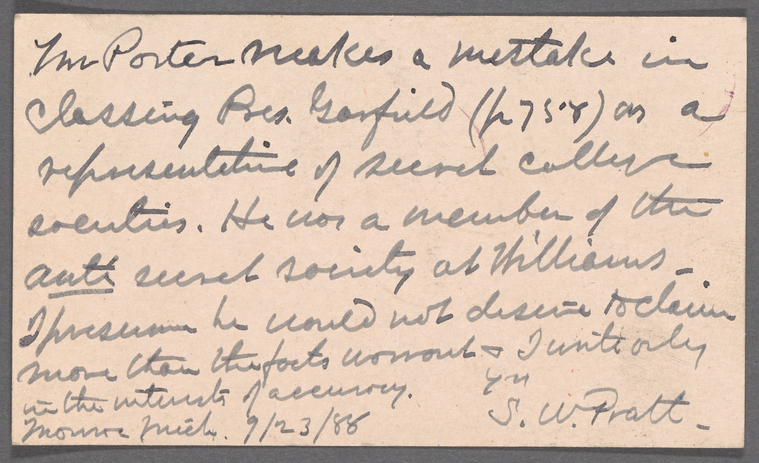 Mr Porter makes a mistake in
classing Pres. Garfield (p 758) as a
representative of secret college
societies. He was a member of the
anti secret society at Williams –
I presume he would not desire to claim
more than the facts warrant & I write only
in the interests of accuracy.
yrs
S. W. Pratt –
Monroe Mich. 9/23/88